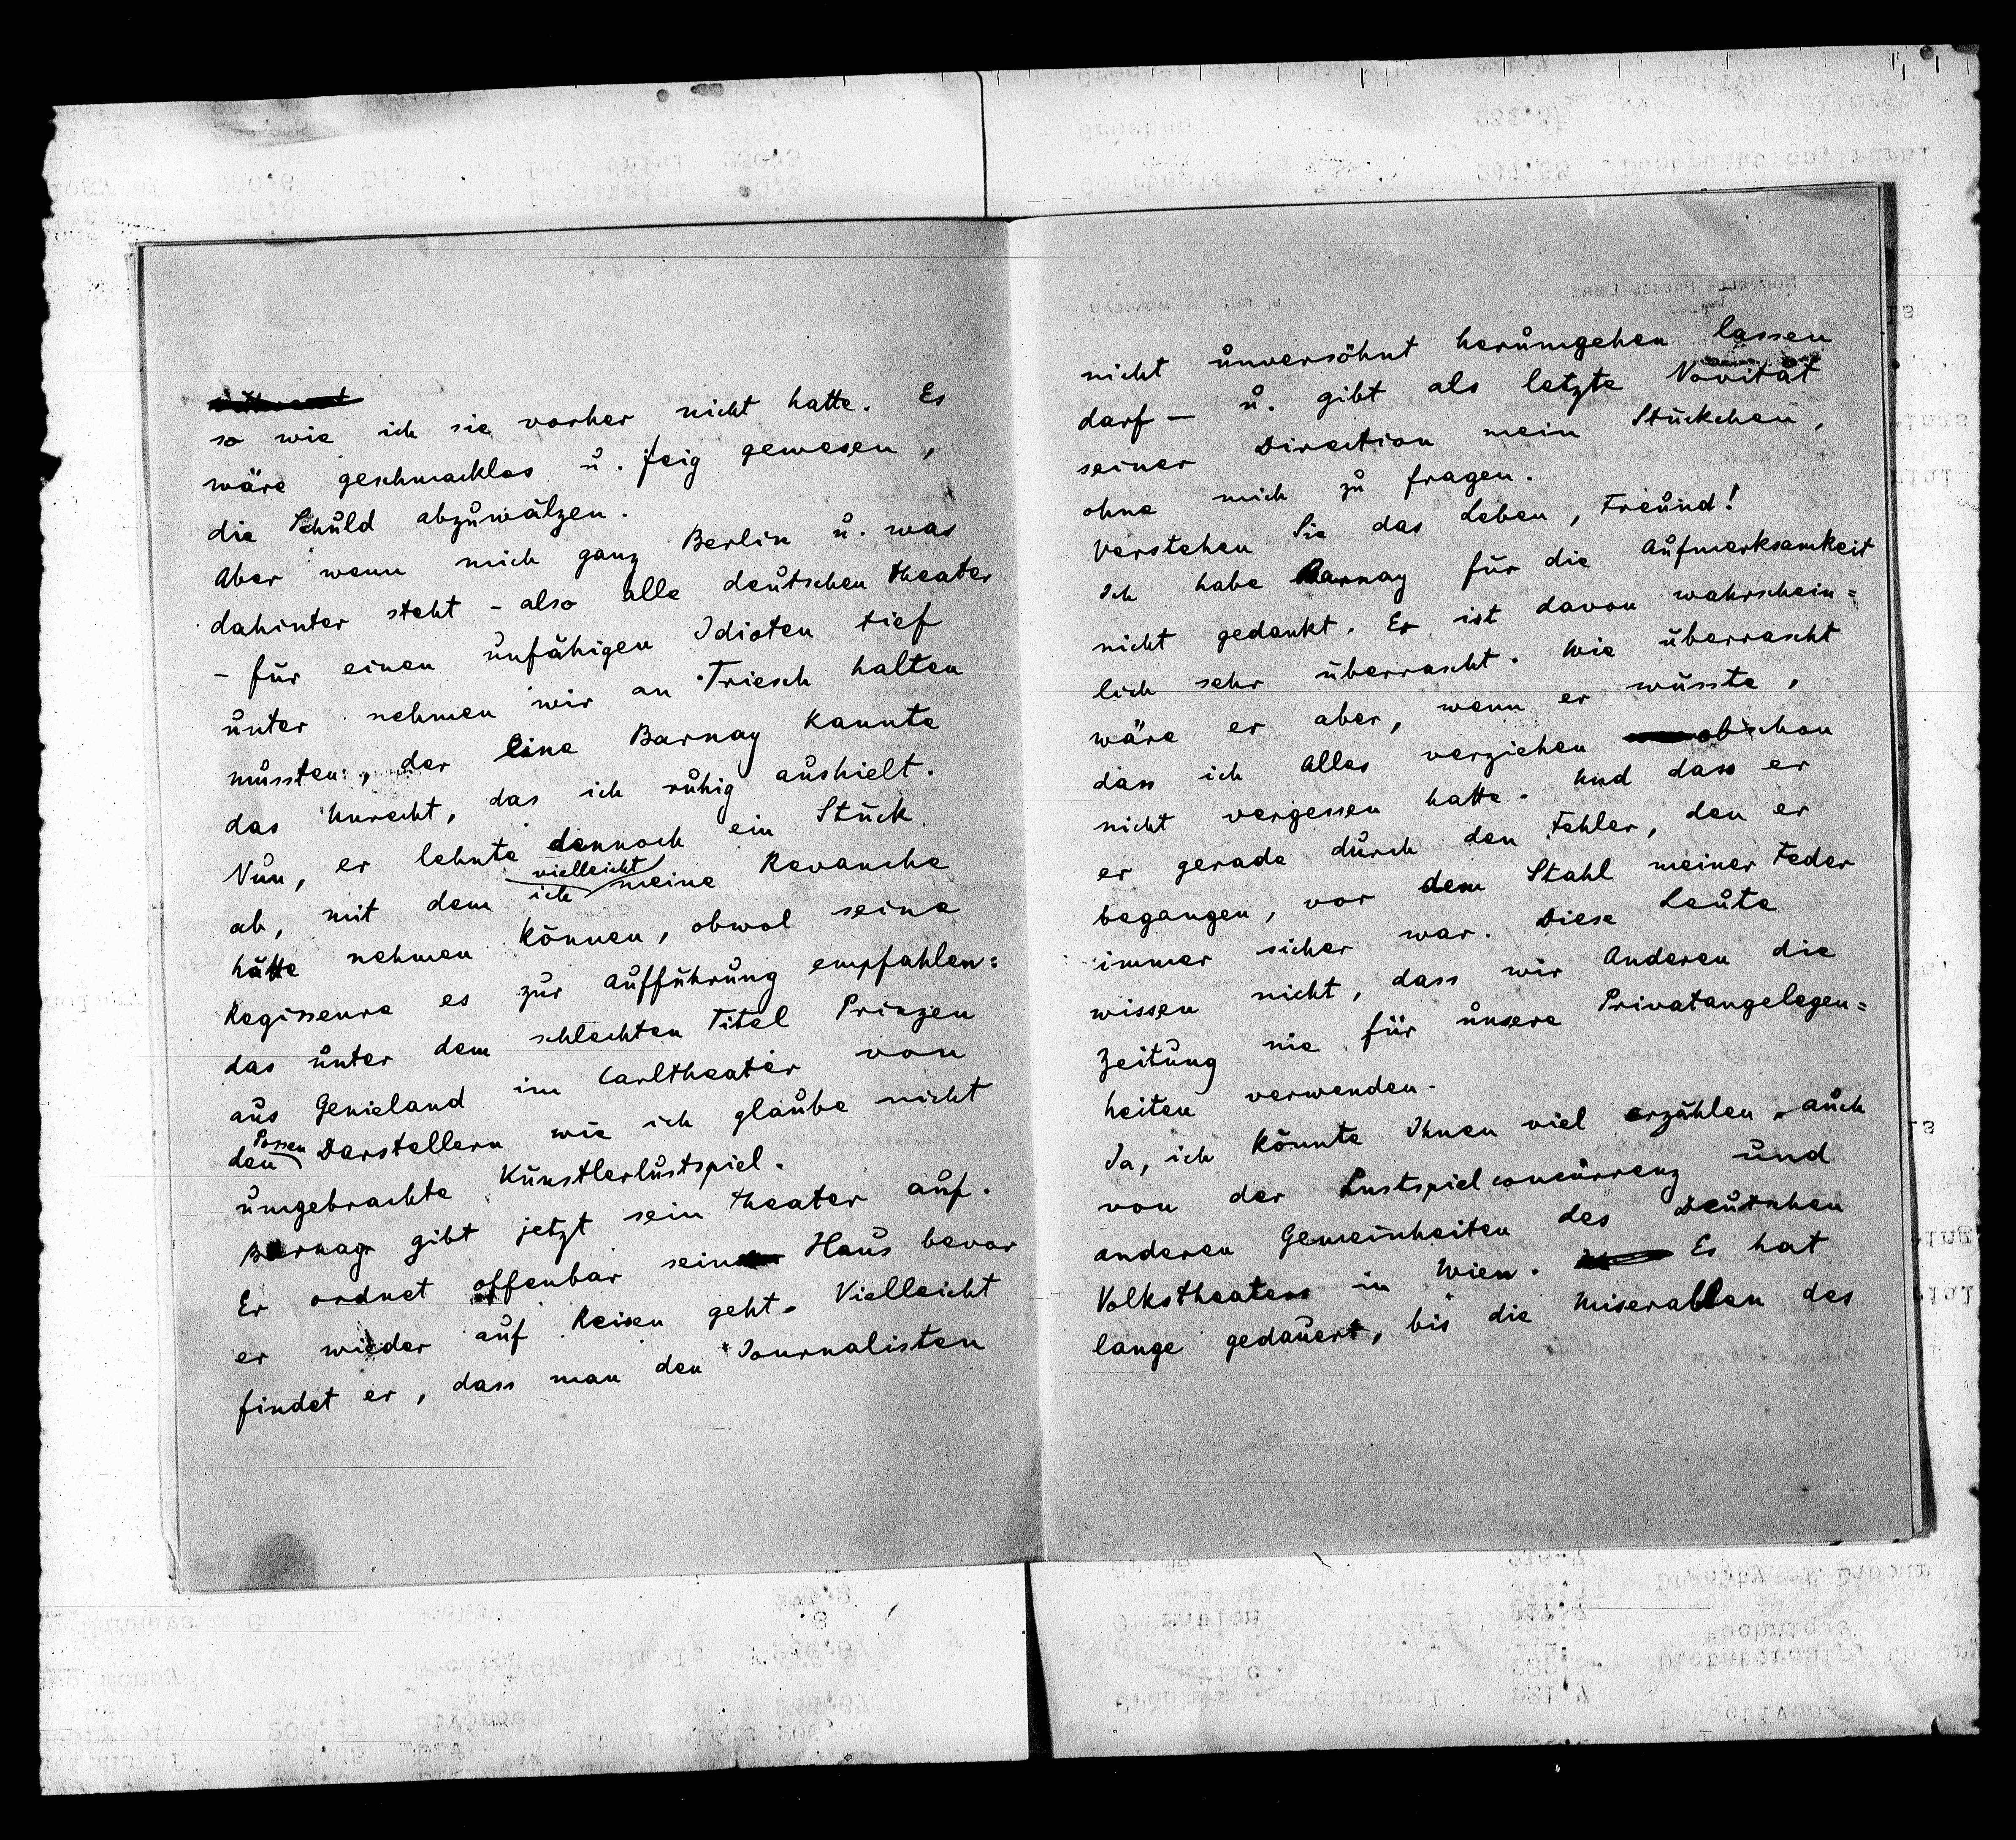 so wie ich sie vorher nicht hatte. Es
wäre geschmacklos u. feig gewesen,
die Schuld abzuwälzen.
Aber wenn mich ganz Berlin u. was
dahinter steht - also alle deutschen Theater
- für einen unfähigen Idioten tief
unter nehmen wir an Triesch halten
mussten, der eine Barnay kannte
das Unrecht, das ich ruhig aushielt.
Nun, er lehnte dennoch ein Stück
ab, mit dem ich vielleicht meine Revanche
hätte nehmen können, obwol seine
Regisseure es zur Aufführung empfahlen:
das unter dem schlechten Titel Prinzen
aus Genieland im Carltheater von
den Possen Darstellern wie ich glaube nicht
umgebrachte Künstlerlustspiel.
Barnay gibt jetzt sein Theater auf.
Er ordnet offenbar sein Haus bevor
er wieder auf Reisen geht. Vielleicht
findet er, dass man den Journalisten
nicht unversöhnt herumgehen lassen
darf - u. gibt als letzte Novität
seiner Direction mein Stückchen,
ohne mich zu fragen.
Verstehen Sie das Leben, Freund!
Ich habe Barnay für die Aufmerksamkeit
nicht gedankt. Er ist davon wahrschein=
lich sehr überrascht. Wie überrascht
wäre er aber, wenn er wüsste,
dass ich Alles verziehen obschon
nicht vergessen hatte. Und dass er
er gerade durch den Fehler, den er
begangen, vor dem Stahl meiner Feder
immer sicher war. Diese Leute
wissen nicht, dass wir Anderen die
Zeitung nie für unsere Privatangelegen=
heiten verwenden.
Ja, ich könnte Ihnen viel erzählen, auch
von der Lustspielconcurrenz und
anderen Gemeinheiten des Deutschen
Volkstheaters in Wien. Es hat
lange gedauert, bis die Miserablen des